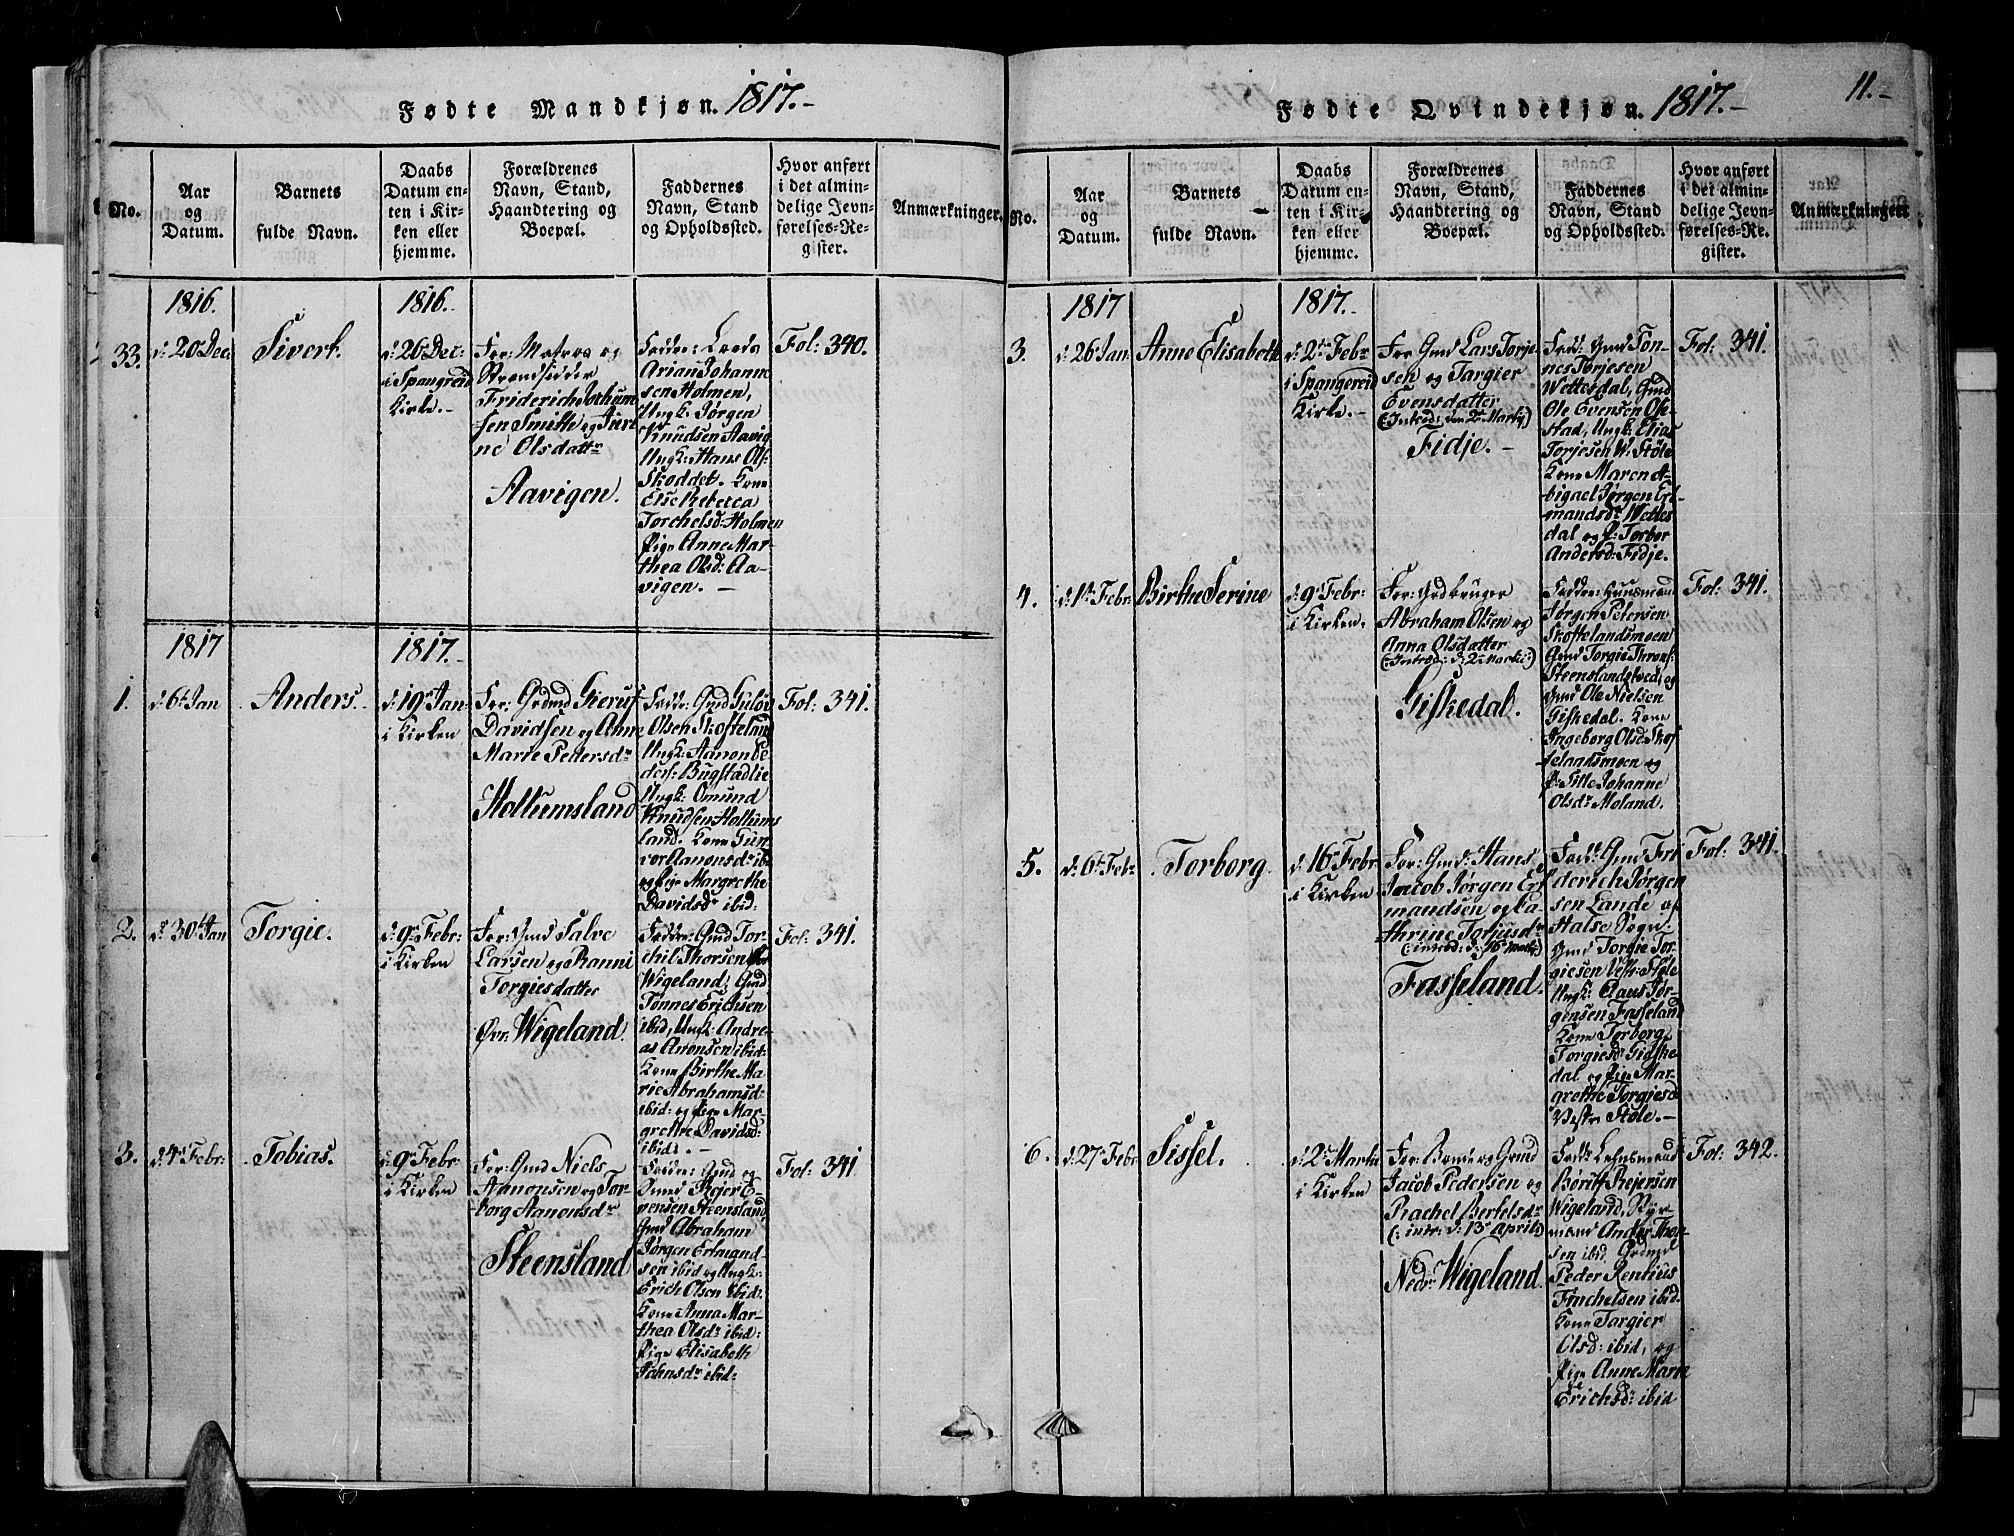 Fødte Mandkjøn. 1817.-
No.
Aar
og
Datum.
Barnets
fulde Navn.
Daabs
Datum en-
ten i Kir-
ken eller
hjemme.
Forældrenes
Navn, Stand,
Haandtering og
Boepæl.
Faddernes
Navn, Stand
og Opholdssted.
Hvor anført
i det almin-
delige Jevn-
førelses-Re-
gister.
Anmærkninger.
1816.
33.
d: 20de Dec:
Sivert.
1816.
d: 26de Dec:
i Spangereid
Kirke.-
For: Matros og
Strandsidder
Friderich Jochum
sen Smith og
ne Olsdattr
Aavigen.
Fadde:
Arian Johanne
sen Holmen,
Ungk: Jørgen
Knudsen Aavig
Ungk: Hans Ols:
Skoddet. Kone
Else Rebecca
Torchelsd: Holmen
Pige Anne Mar-
thea Olsd: Aa-
vigen. -
Fol: 340.
1817
1.
d: 6t Jan
Anders.
1817.
d: 19de Jan:
i Kirken
For: Grdmd Gieruf
Davidsen og Anne
Marie Pedersdr
Hollumsland
Fadd: Gmd Guløv
Olsen Skofteland
Ungk: Aanon Pe
ders: Bugstadlie
Ungk: Omund
Knudsen Hollums
land. Kone Gun
vor Aanonsdr ib:
og Pige Margrethe
Davidsdr ibid:
Fol: 341.
2.
d: 30t Jan
Torgie.
d: 9de Febr:
i Kirken
For: Gmd Salve
Larsen og Ranni
Torgiesdatter
Øvr: Wigeland.
Fadde: Gmd Tor-
chil Thorsen
Wigeland, Gmd
Tønnes Erichsen
ibid, Ungk: Andre-
as Anonsen ibid:
Kone Birthe Ma
rie Abrahamsd:
ibid: og Pige Mar-
grethe Davidsd:
ibid: . -
Fol: 341.
3.
d: 4de Febr:
Tobias.
d: 9de Febr:
i Kirken
For: Gmd Niels
Aanonsen og Tor-
borg Aanonsdr
Steensland
Fadde: Gmd og
Rejer E-
vensen Steensland,
Gmd Abraham
Jørgen Ertmand
sen ibid og Ungk:
Erich Olsen ibid:
Kone Anna Mar-
thea Olsdr ibid:
Pige Elisabeth
Johnsdr ibid:
Fol: 341.
Fødte Qvindekjøn. 1817.-
11.-
No.
Aar
og
Datum.
Barnets
fulde Navn.
Daabs
Datum en-
ten i Kir-
ken eller
hjemme.
Forældrenes
Navn, Stand,
Haandtering og
Boepæl.
Faddernes
Navn, Stand
og Opholdssted.
Hvor anført
i det almin-
delige Jevn-
førelses-Re-
gister.
Anmærkninger
1817
3.
d: 26 Jan:
Anne Elisabeth
1817.
d: 2de Febr
i Spangereid
Kirke. -
For Gmd Lars Torje
sen og Targier
Evensdatter
(: Introd: den 2de Martij)
Fidje. -
Fadd: Gmd Ton-
nes Torjesen
Wettesdal, Gmd
Ole Evensen Ole-
stad, Ungk: Elias
Torjesen W. Støle
Kone Maren A-
bigael Jørgen Ert-
mandsdr Wettes
dal og P: Torbor
Andersd: Fidje.
Fol: 341.
4.
d: 1te Febr:
Birthe Serine
d: 9de Febr:
i Kirken.
For: Grdbruger
Abraham Olsen og
Anna Olsdatter
(: Introd: d: 2de Martii:)
Giskedal.
Fadde: Huusmand
Jørgen Petersen
Skoftelandsmoen
Gmd Torgie Throns:
Steenslandsved, og
Gmd Ole Nielsen
Giskedal. Kone
Ingeborg Olsd: Skof
telandsmoen og
P: Sille Johanne
Olsdr Moland.
Fol: 341.
5.
d: 6t Febr
Torborg.
d: 16de Febr
i Kirken
For: Gmd: Hans
Jacob Jørgen Ert
mandsen og Ca
thrine Torjusdr
(: introd: d: 16de Martij)
Fasseland.
Fadd: Gmd Fri
derich Jørgen
sen Lande af
Halse Sogn.
Gmd Torgie Tor-
giesen Vest: Støle
Ungk: Claus Jør-
gensen Fasseland
Kone Torborg
Torgiesdr Gidske
dal og Pige Mar-
grethe Torgiesd
Vestr Støle. -
Fol: 341.
6.
d: 27de Febr
Sissel.
d: 2de Martii
i Kirken
For: Bonde og Gmd
Jacob Pedersen og
Rachel Bertelsdr
(: intr: d: 13de april:)
Nedr: Wigeland.
Fadd: Lehnsmand
Børith Rejersen
Wigeland,
mand Anders Thor
sen ibid. Grdmd
Peder Rentius
Trochelsen ibid.
Kone Targier
Olsd: ibid, og
Pige Anne Marie
Erichsd: ibid
Fol: 342.